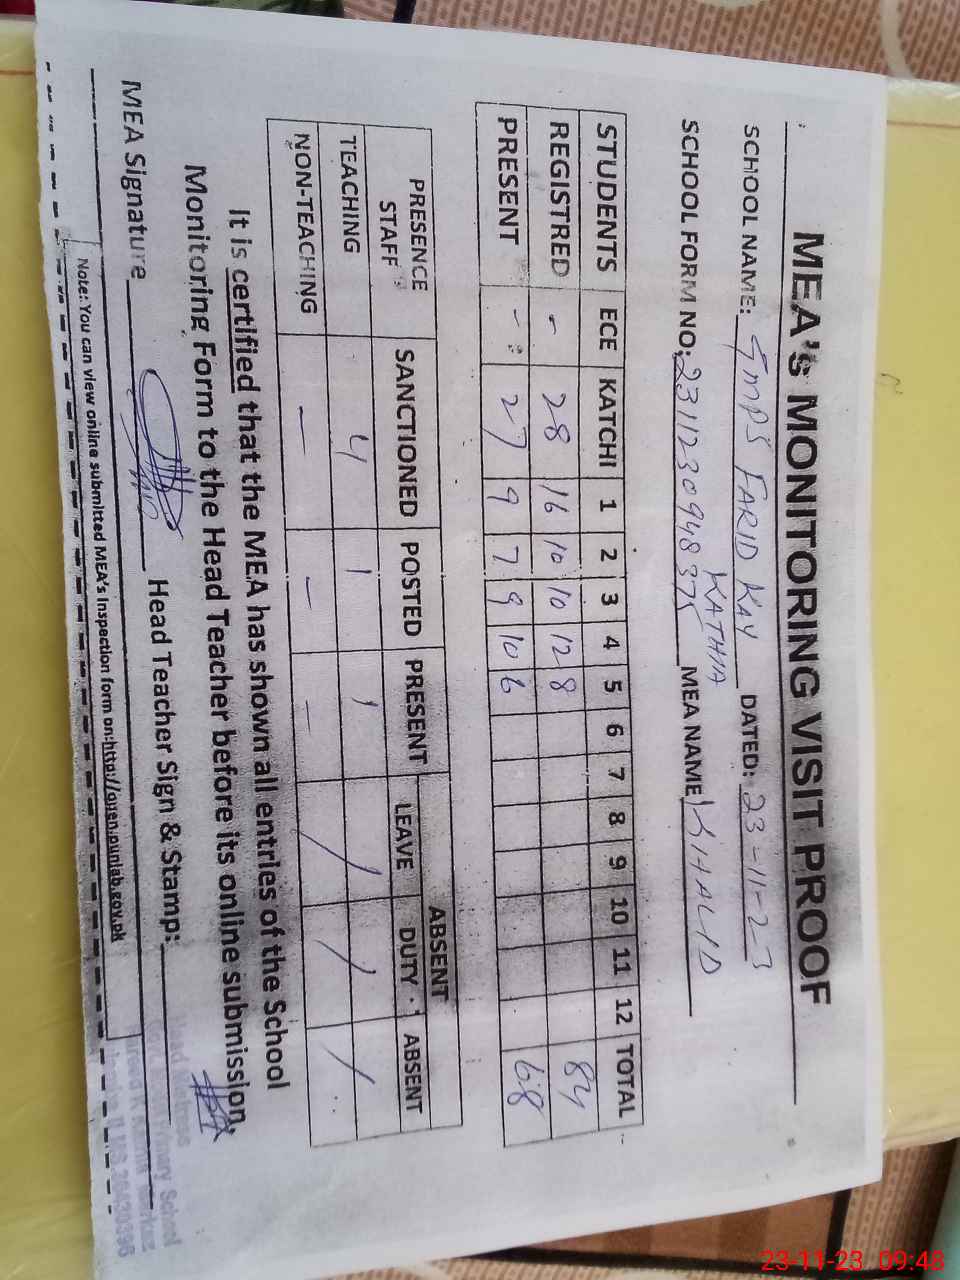 MEA's MONITORING VISIT PROOF
SCHOOL NAME: GMPS FARID KAY KATHIA DATED: 23-11-23
SCHOOL FORM NO: 231123094837 MEA NAME KHALID
STUDENTS ECE KATCHI 1 2 3 4 5 6 7 8 9 10 11 12 TOTAL
REGISTRED - 28 16 10 10 12 8 84
PRESENT - 27 9 7 9 10 6 68
PRESENCE STAFF SANCTIONED POSTED PRESENT ABSENT
LEAVE DUTY ABSENT
TEACHING 4 1 1 / / /
NON-TEACHING - - -
It is certified that the MEA has shown all entries of the School
Monitoring Form to the Head Teacher before its online submission.
MEA Signature Head Teacher Sign & Stamp:
Head
Primary School
Note: You can view online submitted MEA's Inspection form on:http://open.punjab.gov.pk
23-11-23 09:48